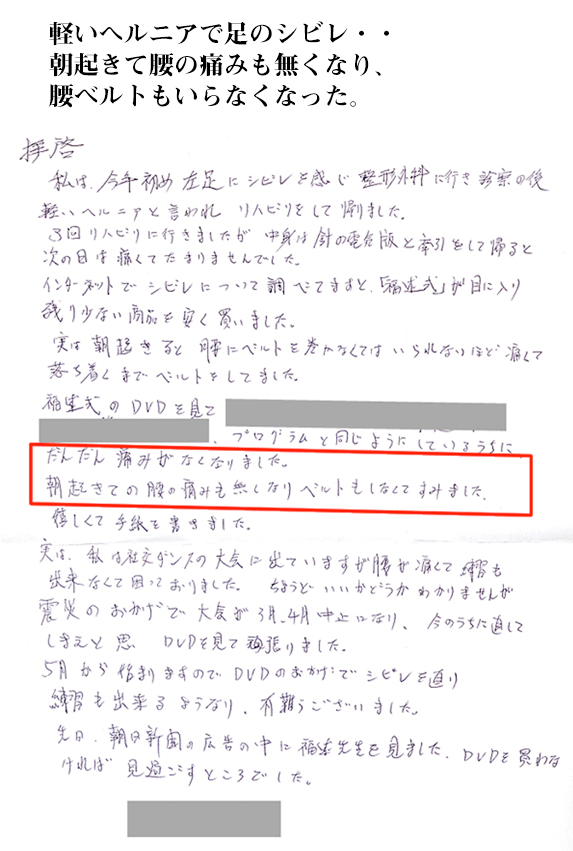 軽いヘルニアで足のシビレ・・
朝起きて腰の痛みも無くなり、
腰ベルトもいらなくなった。
拝啓
私は、今年初め左足にシビレを感じ整形外科に行き診察の後
軽いヘルニアと言われ リハビリをして帰りました。
3回リハビリに行きましたが 中身は針の電台版と牽引をして帰ると
次の日は痛くてたまりませんでした。
インターネットでシビレについて調べてますと、「福辻式」が目に入り
残り少ない商品を安く買いました。
実は朝起きると腰にベルトを巻かなくてはいられないほど痛くて
落ち着くまでベルトをしてました。
福辻式のDVDを見て
、プログラムと同じようにしているうちに
だんだん痛みがなくなりました。
朝起きての腰の痛みも無しなりベルトもしなくてすみました。
嬉しくて手紙を書きました。
実は、私は社交ダンスの大会に出ていますが腰が痛くて練習も
出来なくて困っておりました。 ちょうどいいかどうかわかりませんが
震災のおかげで大会が3月、4月中止になり、今のうちに直して
しまえと思 DVDを見て頑張りました。
5月から始まりますのでDVDのおかげでシビレも直り
練習も出来るようなり、有難うございました。
先日、朝日新聞の広告の中に福辻先生を見ました、DVDを買わな
ければ 見過ごすところでした。